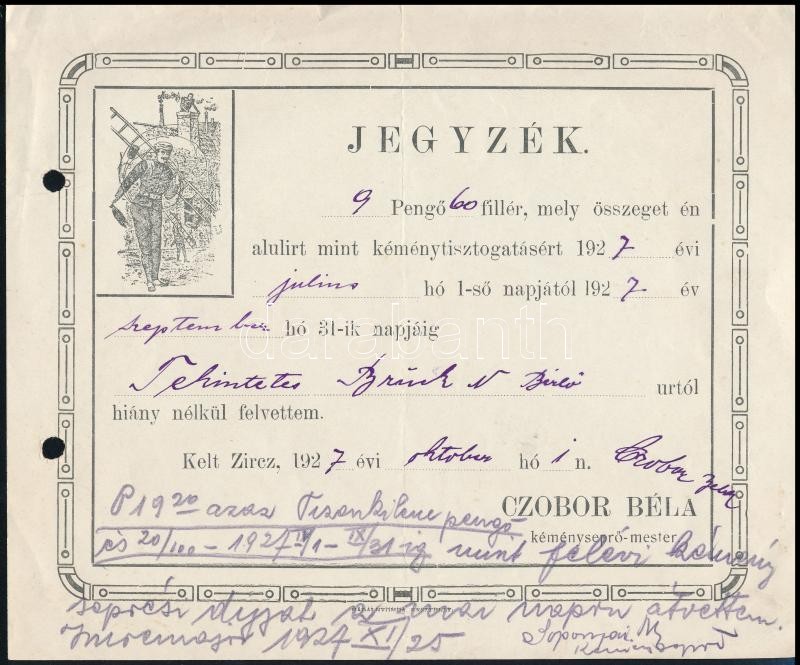 JEGYZÉK.
9 Pengő 60 fillér, mely összeget én
alulirt mint kéménytisztogatásért 1927 évi
julius hó 1-ső napjától 1927 év
szeptember hó 31-ik napjáig
darabanth
Tekintetes Brück N Bérlő urtól
hiány nélkül felvettem.
Kelt Zircz, 1927 évi oktober hó 1 n. Czobor Béla
CZOBOR BÉLA
kéményseprő-mester
P 19 20 azaz Tizenkilenc pengő
és 20/100 - 1927 IV/1 - IX/31-ig mint félévi kémény
seprési díjat a mai napon átvettem.
1927 XI/25